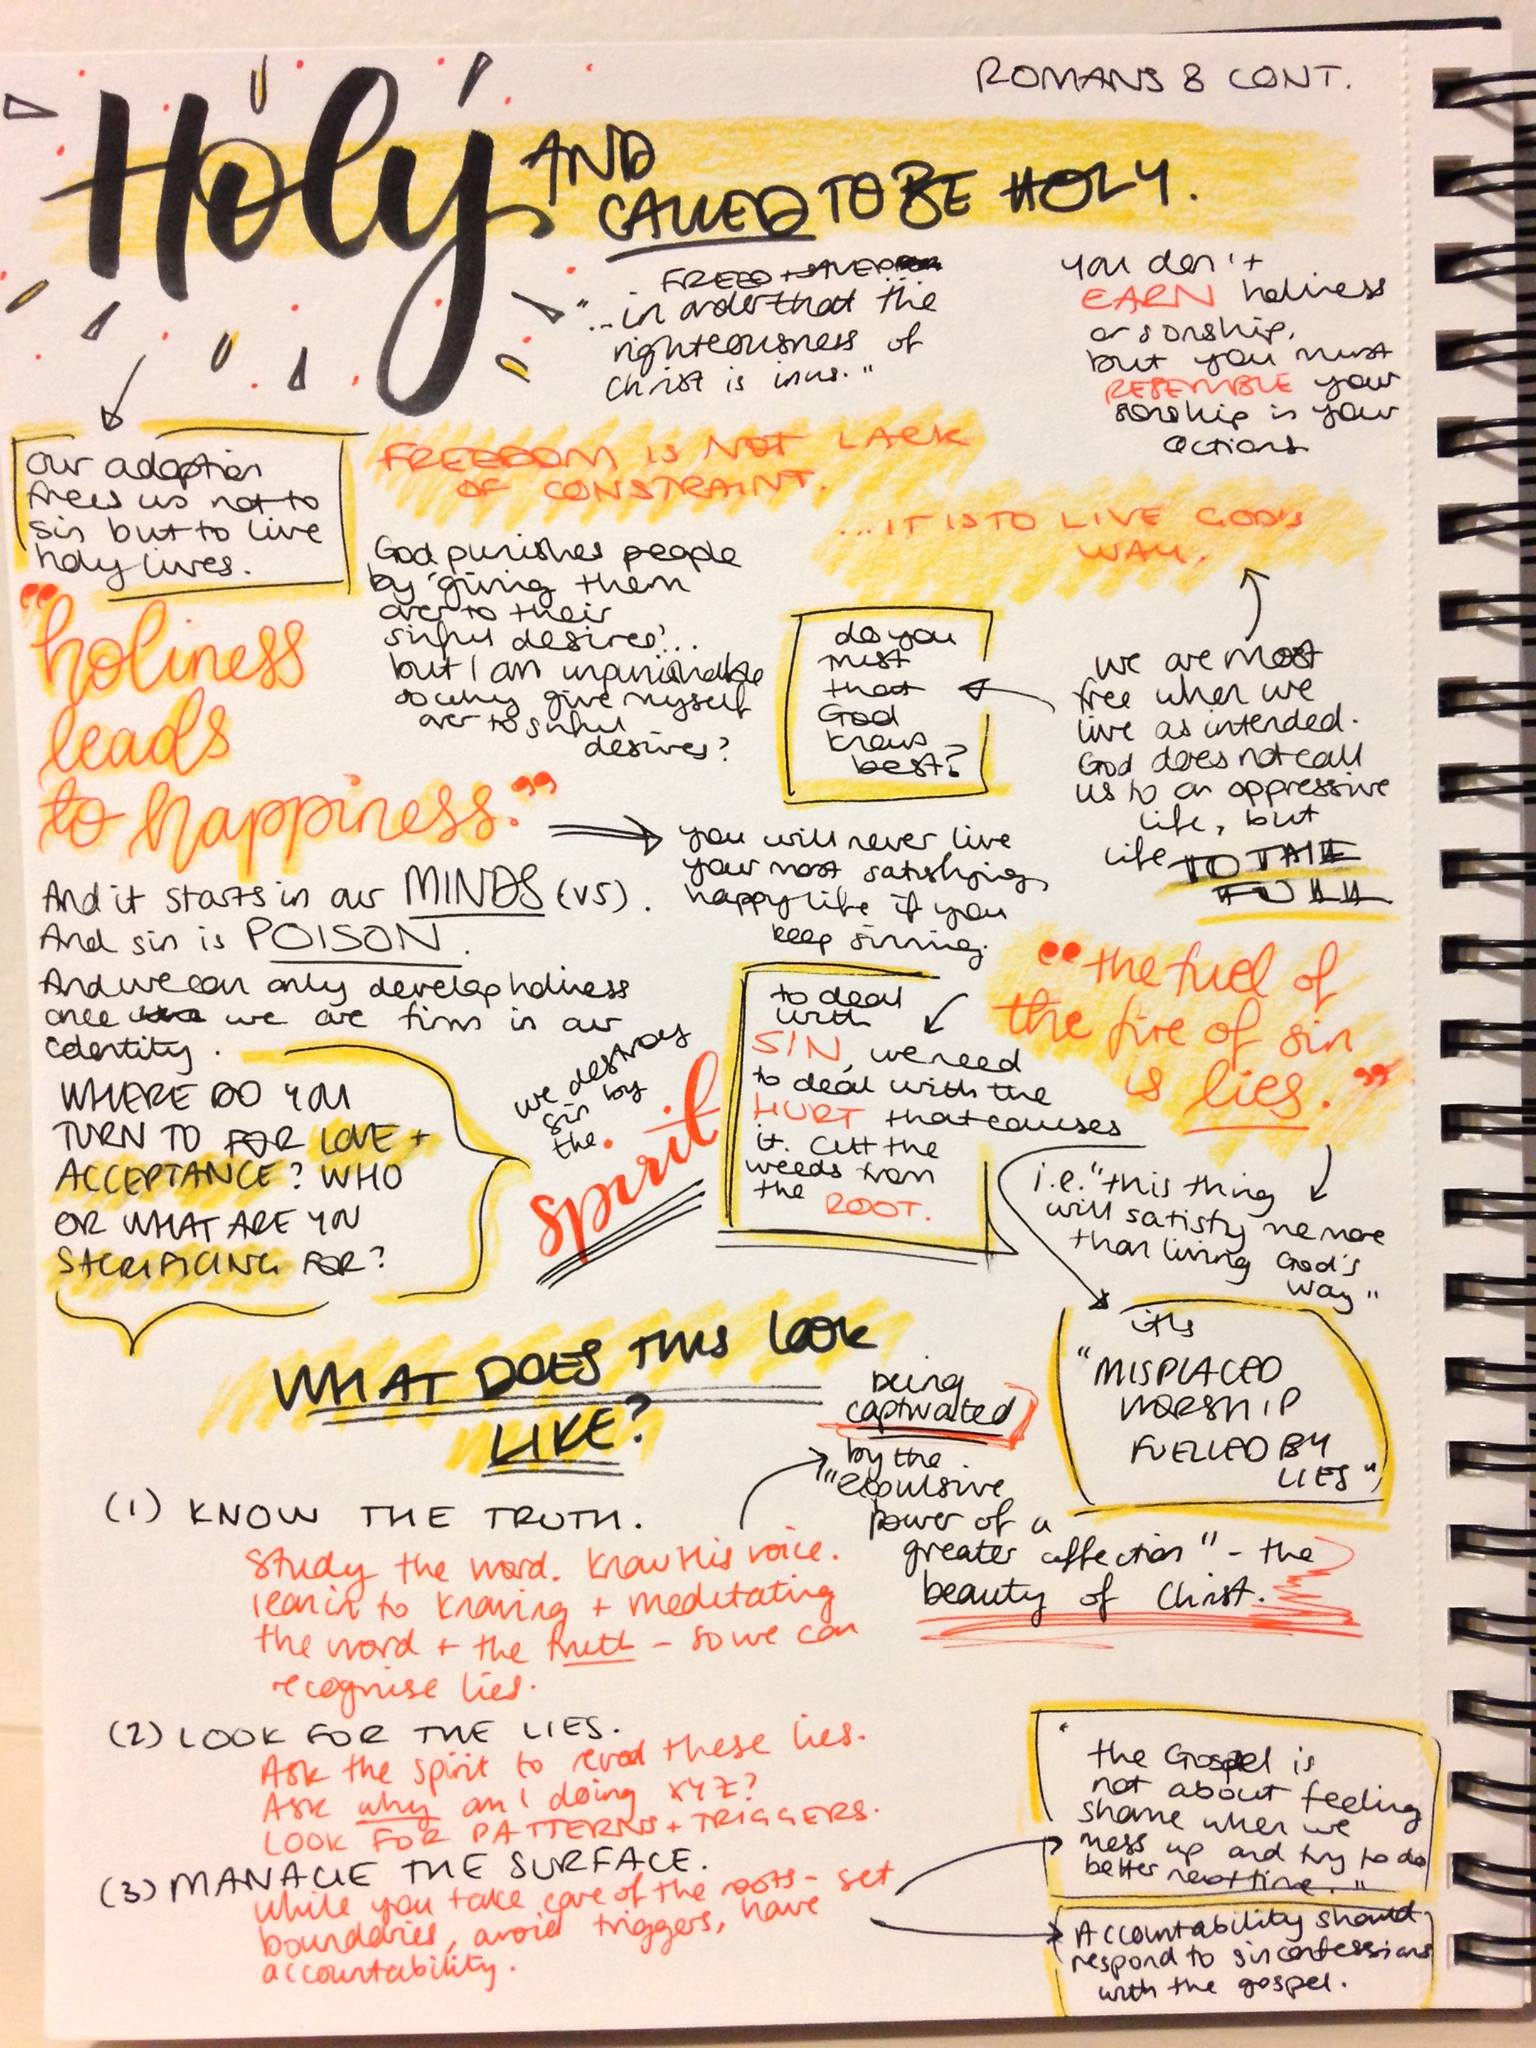 ROMANS 8 CONT.
Holy AND
CALLED TO BE HOLY.
FREED + SAVED
"...in order that the
righteousness of
Christ is in us."
you don't
EARN holiness
or sonship,
but you must
RESEMBLE your
sonship in your
actions
our adoption
frees us not to
sin but to live
holy lives.
FREEDOM IS NOT LACK
OF CONSTRAINT.
...IT IS TO LIVE GOD'S
WAY.
God punishes people
by 'giving them
over to their
sinful desires'...
but I am unpunishable
so why give myself
over to sinful
desires?
"holiness
leads
to happiness."
do you
trust
that
God
knows
best?
we are most
free when we
live as intended.
God does not call
us to an oppressive
life, but
life TO THE
FULL
you will never live
your most satisfying,
happy life if you
keep sinning.
And it starts in our MINDS (v5).
And sin is POISON.
And we can only develop holiness
once we are firm in our
identity.
WHERE DO YOU
TURN TO FOR LOVE +
ACCEPTANCE? WHO
OR WHAT ARE YOU
SACRIFICING FOR?
we destroy
sin by
the
spirit
to deal
with
SIN, we need
to deal with the
HURT that causes
it. Cut the
weeds from
the ROOT.
"the fuel of
the fire of sin
is lies."
i.e. "this thing
will satisfy me more
than living God's
way"
it's
"MISPLACED
WORSHIP
FUELLED BY
LIES"
WHAT DOES THIS LOOK
LIKE?
being
captivated
by the
"expulsive
power of a
greater affection" - the
beauty of Christ.
(1) KNOW THE TRUTH.
Study the word. Know His voice.
lean in to knowing + meditating
the word + the truth - so we can
recognise lies.
(2) LOOK FOR THE LIES.
Ask the spirit to reveal these lies.
Ask why am I doing XYZ?
LOOK FOR PATTERNS + TRIGGERS.
(3) MANAGE THE SURFACE.
while you take care of the roots - set
boundaries, avoid triggers, have
accountability.
'the Gospel is
not about feeling
shame when we
mess up and try to do
better next time."
Accountability should
respond to sin confessions
with the gospel.